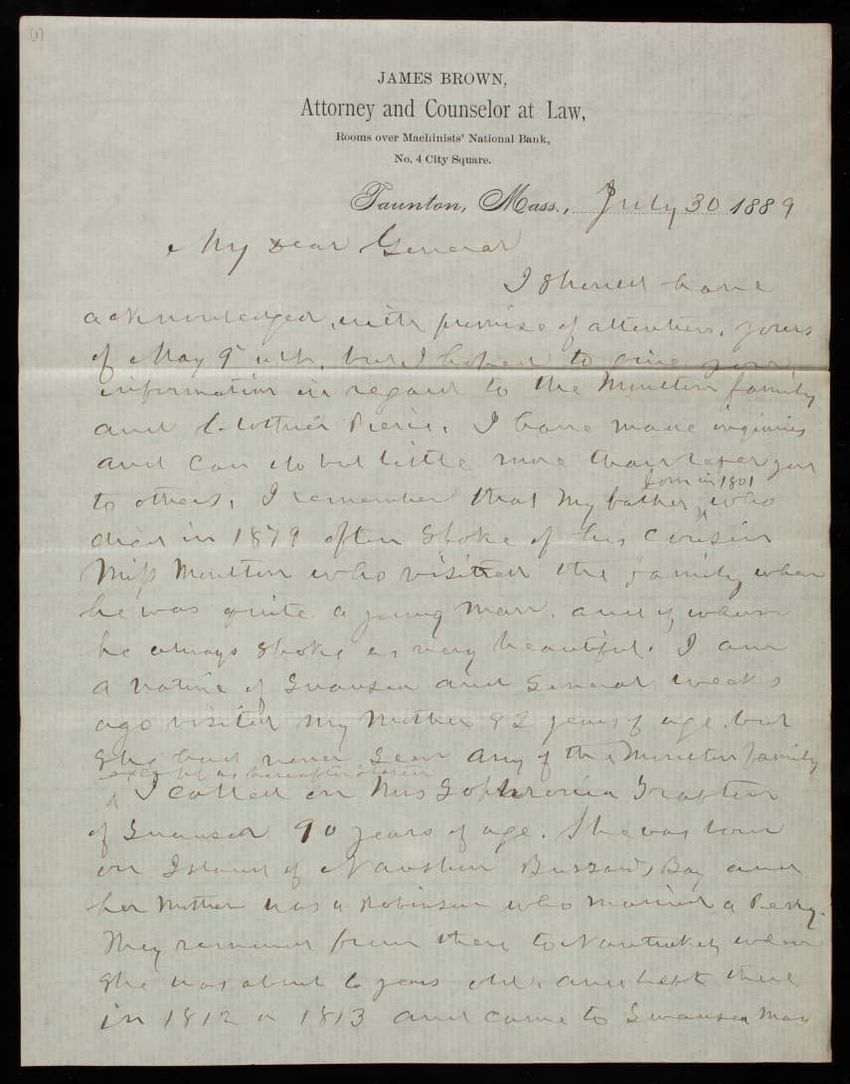 JAMES BROWN,
Attorney and Counselor at Law,
Rooms over Machinists' National Bank,
No. 4 City Square.
Taunton, Mass., July 30 1889
My Dear General
I should have
acknowledged, with promise of attention, yours
of May 9 ult, but I hoped to give you
information in regard to the Moulton family
and Clothier Peirce. I have made inquiries
and can do but little more than refer you
born in 1801
to others. I remember that my father, who
died in 1879 often spoke of his cousin
Miss Moulton who visited the family when
he was quite a young man, and of whom
he always spoke as very beautiful. I am
a native of Swansea and several weeks
ago visited my Mother 82 years of age. but
she had never seen any of the Moulton family
except as hereafter stated
I called on Mrs Sophronia
of Swansea 90 years of age. She was born
on Island of Naushon Buzzards Bay and
her Mother was a Robinson who married a Perry.
They removed from there to Nantucket when
she was about 6 years old, and left there
in 1812 or 1813 and came to Swansea Mass